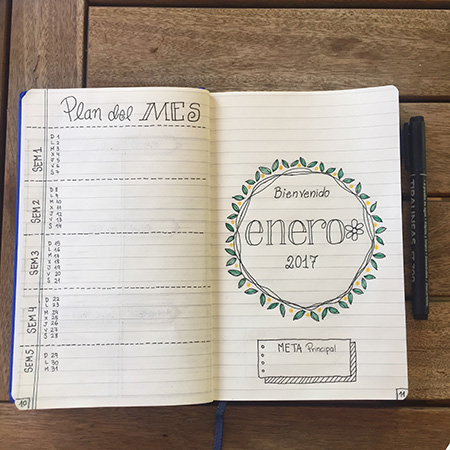 Plan del MES
SEM 1
D 1
L 2
M 3
X 4
J 5
V 6
S 7
SEM 2
D 8
L 9
M 10
X 11
J 12
V 13
S 14
SEM 3
D 15
L 16
M 17
X 18
J 19
V 20
S 21
SEM 4
D 22
L 23
M 24
X 25
J 26
V 27
S 28
SEM 5
D 29
L 30
M 31
10
Bienvenido
enero
2017
META Principal
11